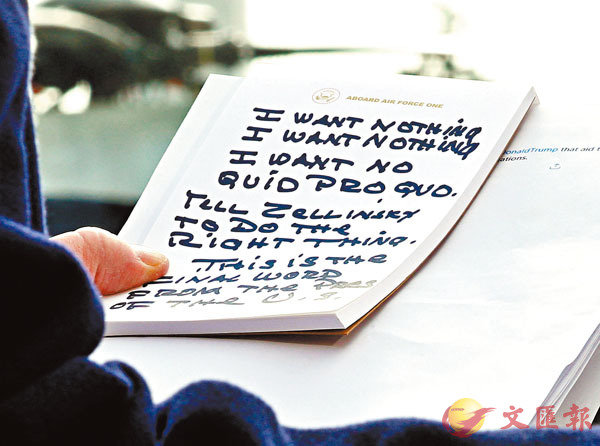 ABOARD AIR FORCE ONE
I WANT NOTHING
I WANT NOTHING
I WANT NO
QUID PRO QUO.
TELL ZELLINSKY
TO DO THE
RIGHT THING.
THIS IS THE
FINAL WORD
FROM THE PRES
OF THE U.S.
onaldTrump that aid t
ations.
文匯報